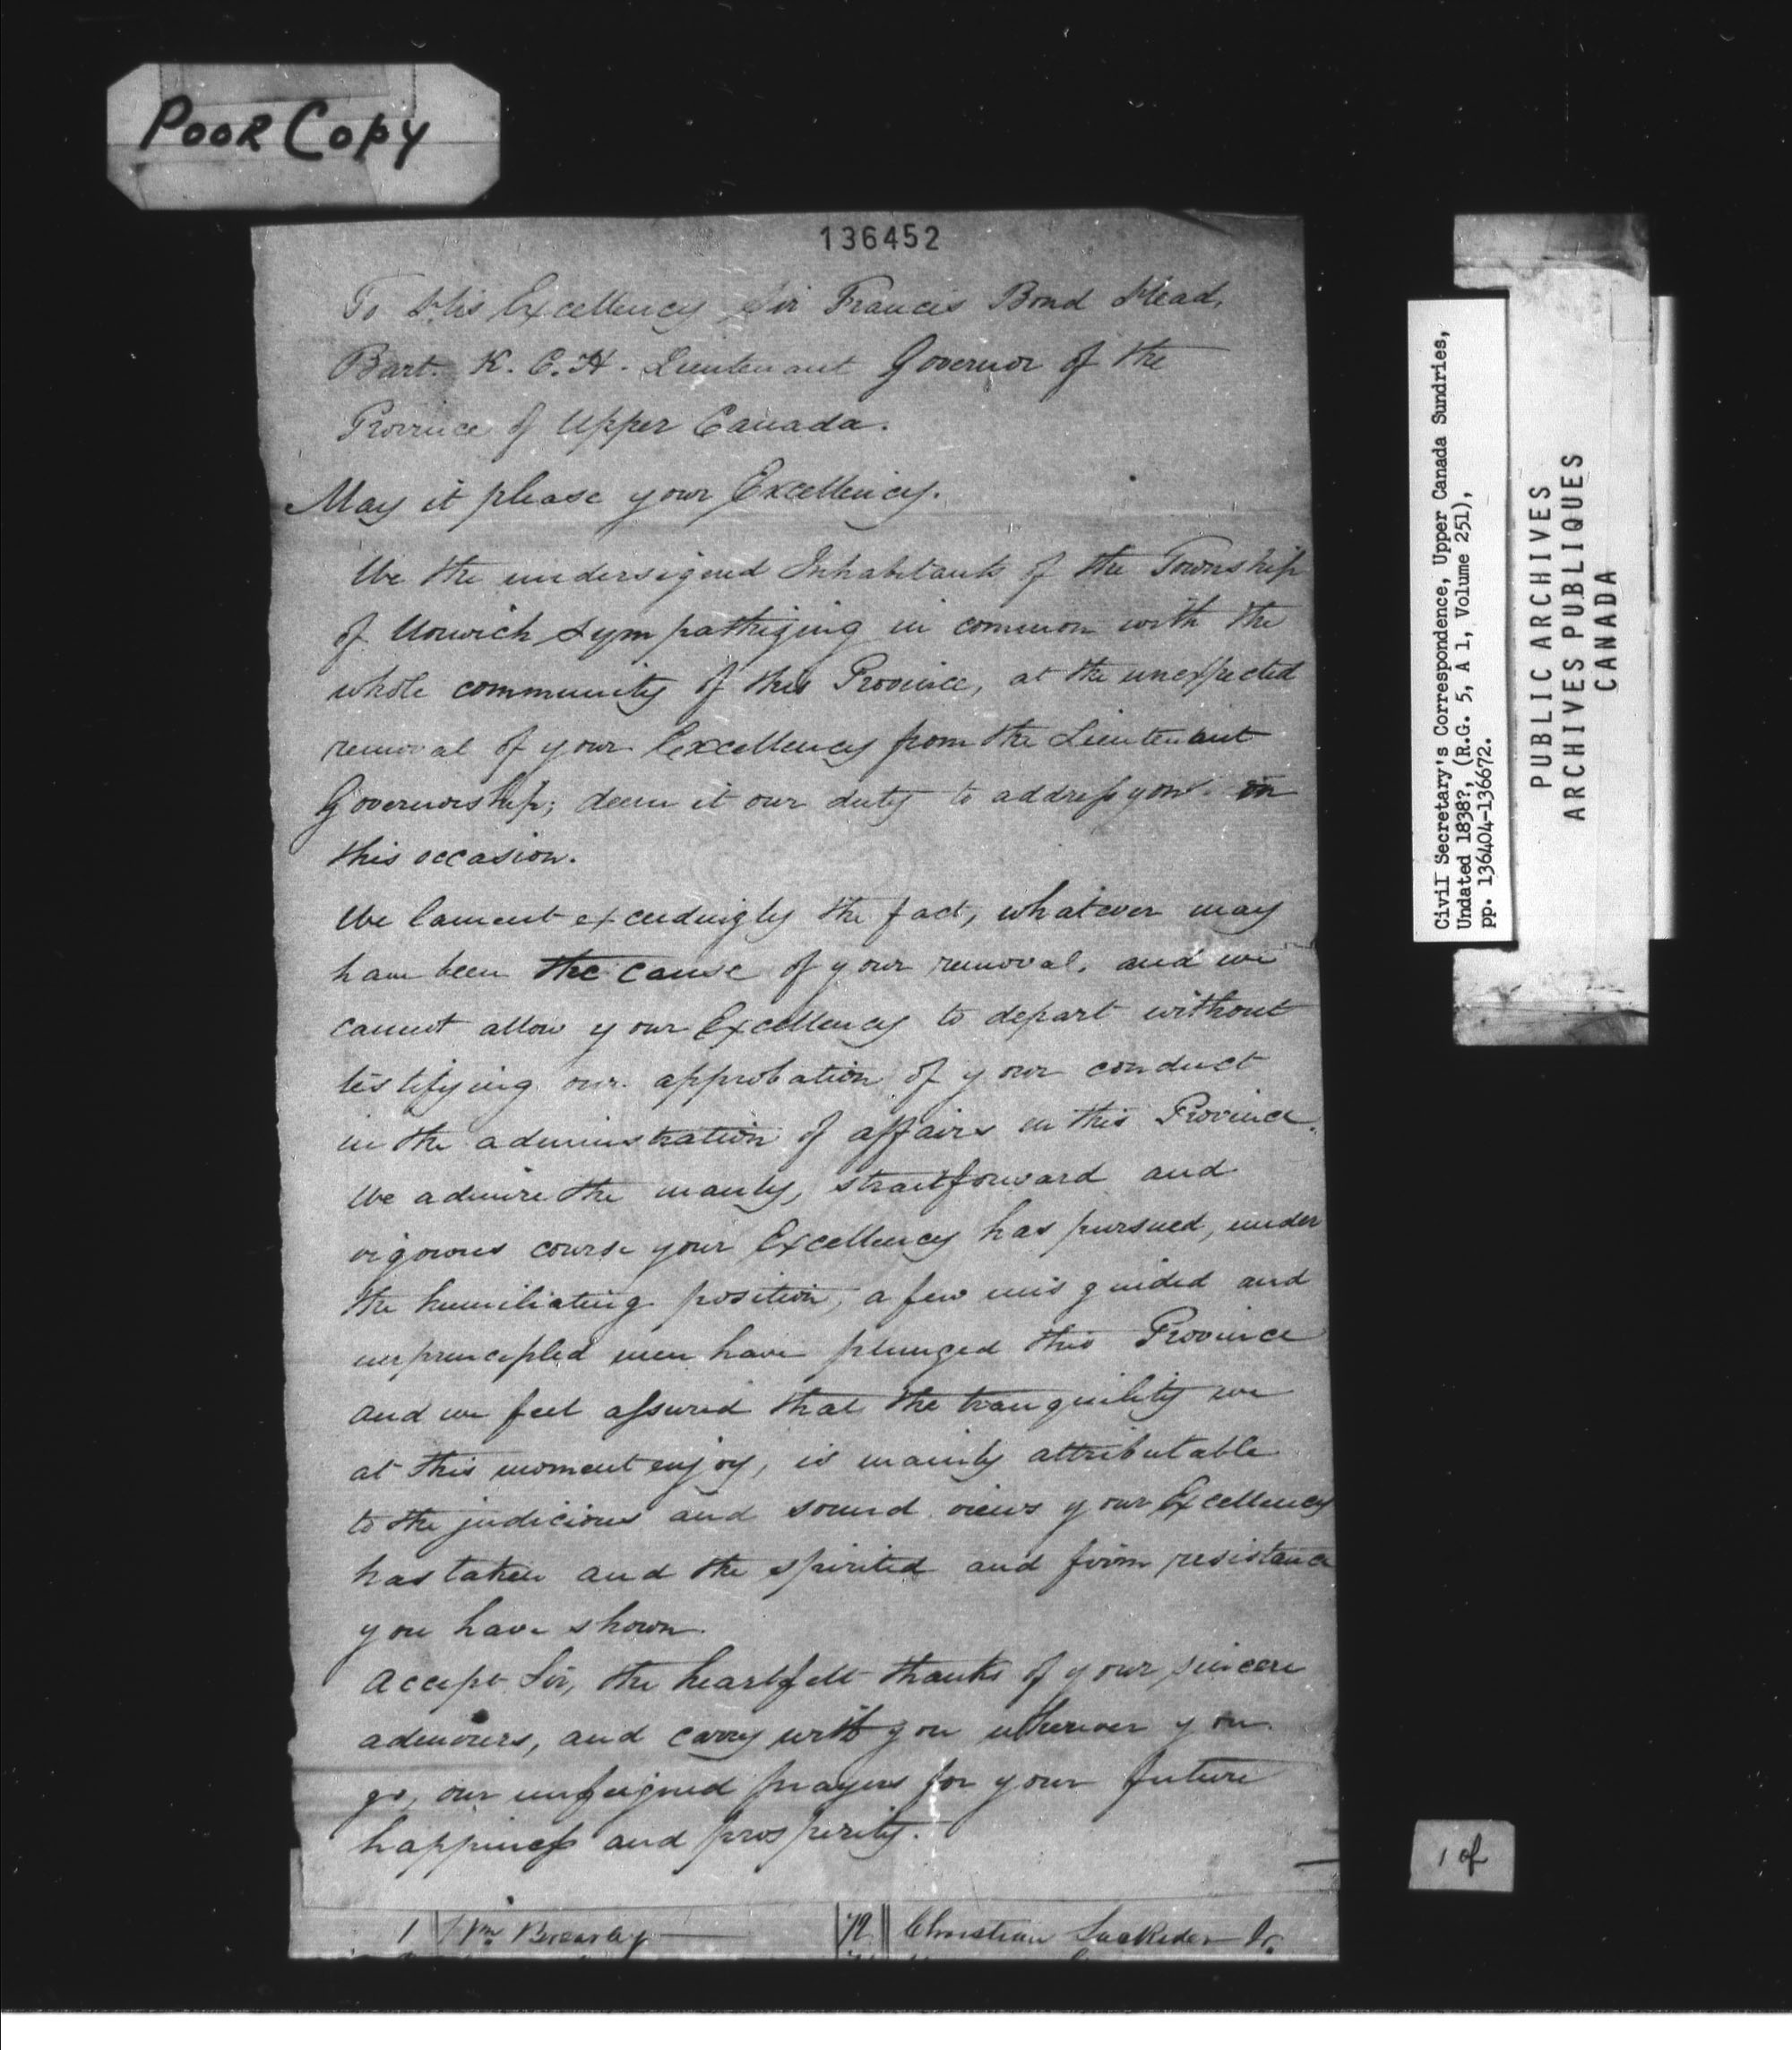 Poor Copy
136452
To His Excellency Sir Francis Bond Head,
Bart. K. C. H. Lieutenant Governor of the
Province of Upper Canada.
May it please your Excellency.
We the undersigned Inhabitants of the Township
of Norwich sympathizing in common with the
whole community of this Province, at the unexpected
removal of your Excellency from the Lieutenant
Governorship; deem it our duty to address you on
this occasion.
We lament exceedingly the fact, whatever may
have been the cause of your removal, and we
cannot allow your Excellency to depart without
testifying our approbation of your conduct
in the administration of affairs in this Province.
We admire the manly, straitforward and
vigorous course your Excellency has pursued, under
the humiliating position, a few misguided and
unprincipled men have plunged this Province
and we feel assured that the tranquility we
at this moment enjoy, is mainly attributable
to the judicious and sound views your Excellency
has taken and the spirited and firm resistance
you have shown.
Accept Sir, the heartfelt thanks of your sincere
admirers, and carry with you wherever you
go, our unfeigned prayers for your future
happiness and prosperity.
1 Wm Brearley 72 Christian Jr.
Civil Secretary's Correspondence, Upper Canada Sundries,
Undated 1838?, (R.G. 5, A 1, Volume 251),
pp. 136404-136672.
PUBLIC ARCHIVES
ARCHIVES PUBLIQUES
CANADA
1 of